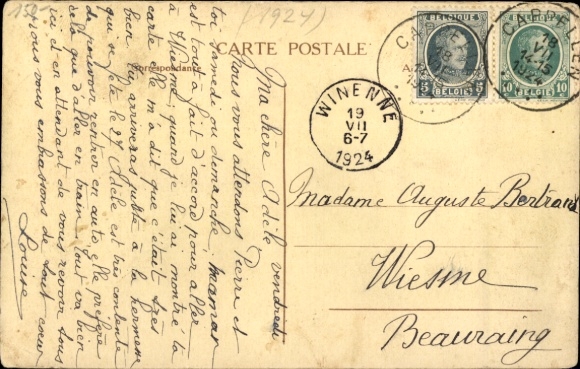 150
(1924)
CARTE POSTALE
Correspondance
Ma chère Adèle vendredi
Nous vous attendons Pierre et
toi samedi ou dimanche, maman
est tout à fait d'accord pour aller
à Wiesme, quand je lui ai montré la
carte elle m'a dit que c'était très
bien tu arriveras juste à la kermesse
qui se fête le 27 Adèle est très contente
de pouvoir rentrer en auto, elle préfère
cela que d'aller en train. Tout va bien
ici et en attendant de vous revoir tous
nous vous embrassons de tout coeur
Louise
BELGIQUE
5 5
BELGIË
BELGIQUE
10 10
BELGIË
CAPPELLEN
18
VII
1924
WINENNE
19
VII
6-7
1924
Madame Auguste Bertrand
Wiesme
Beauraing